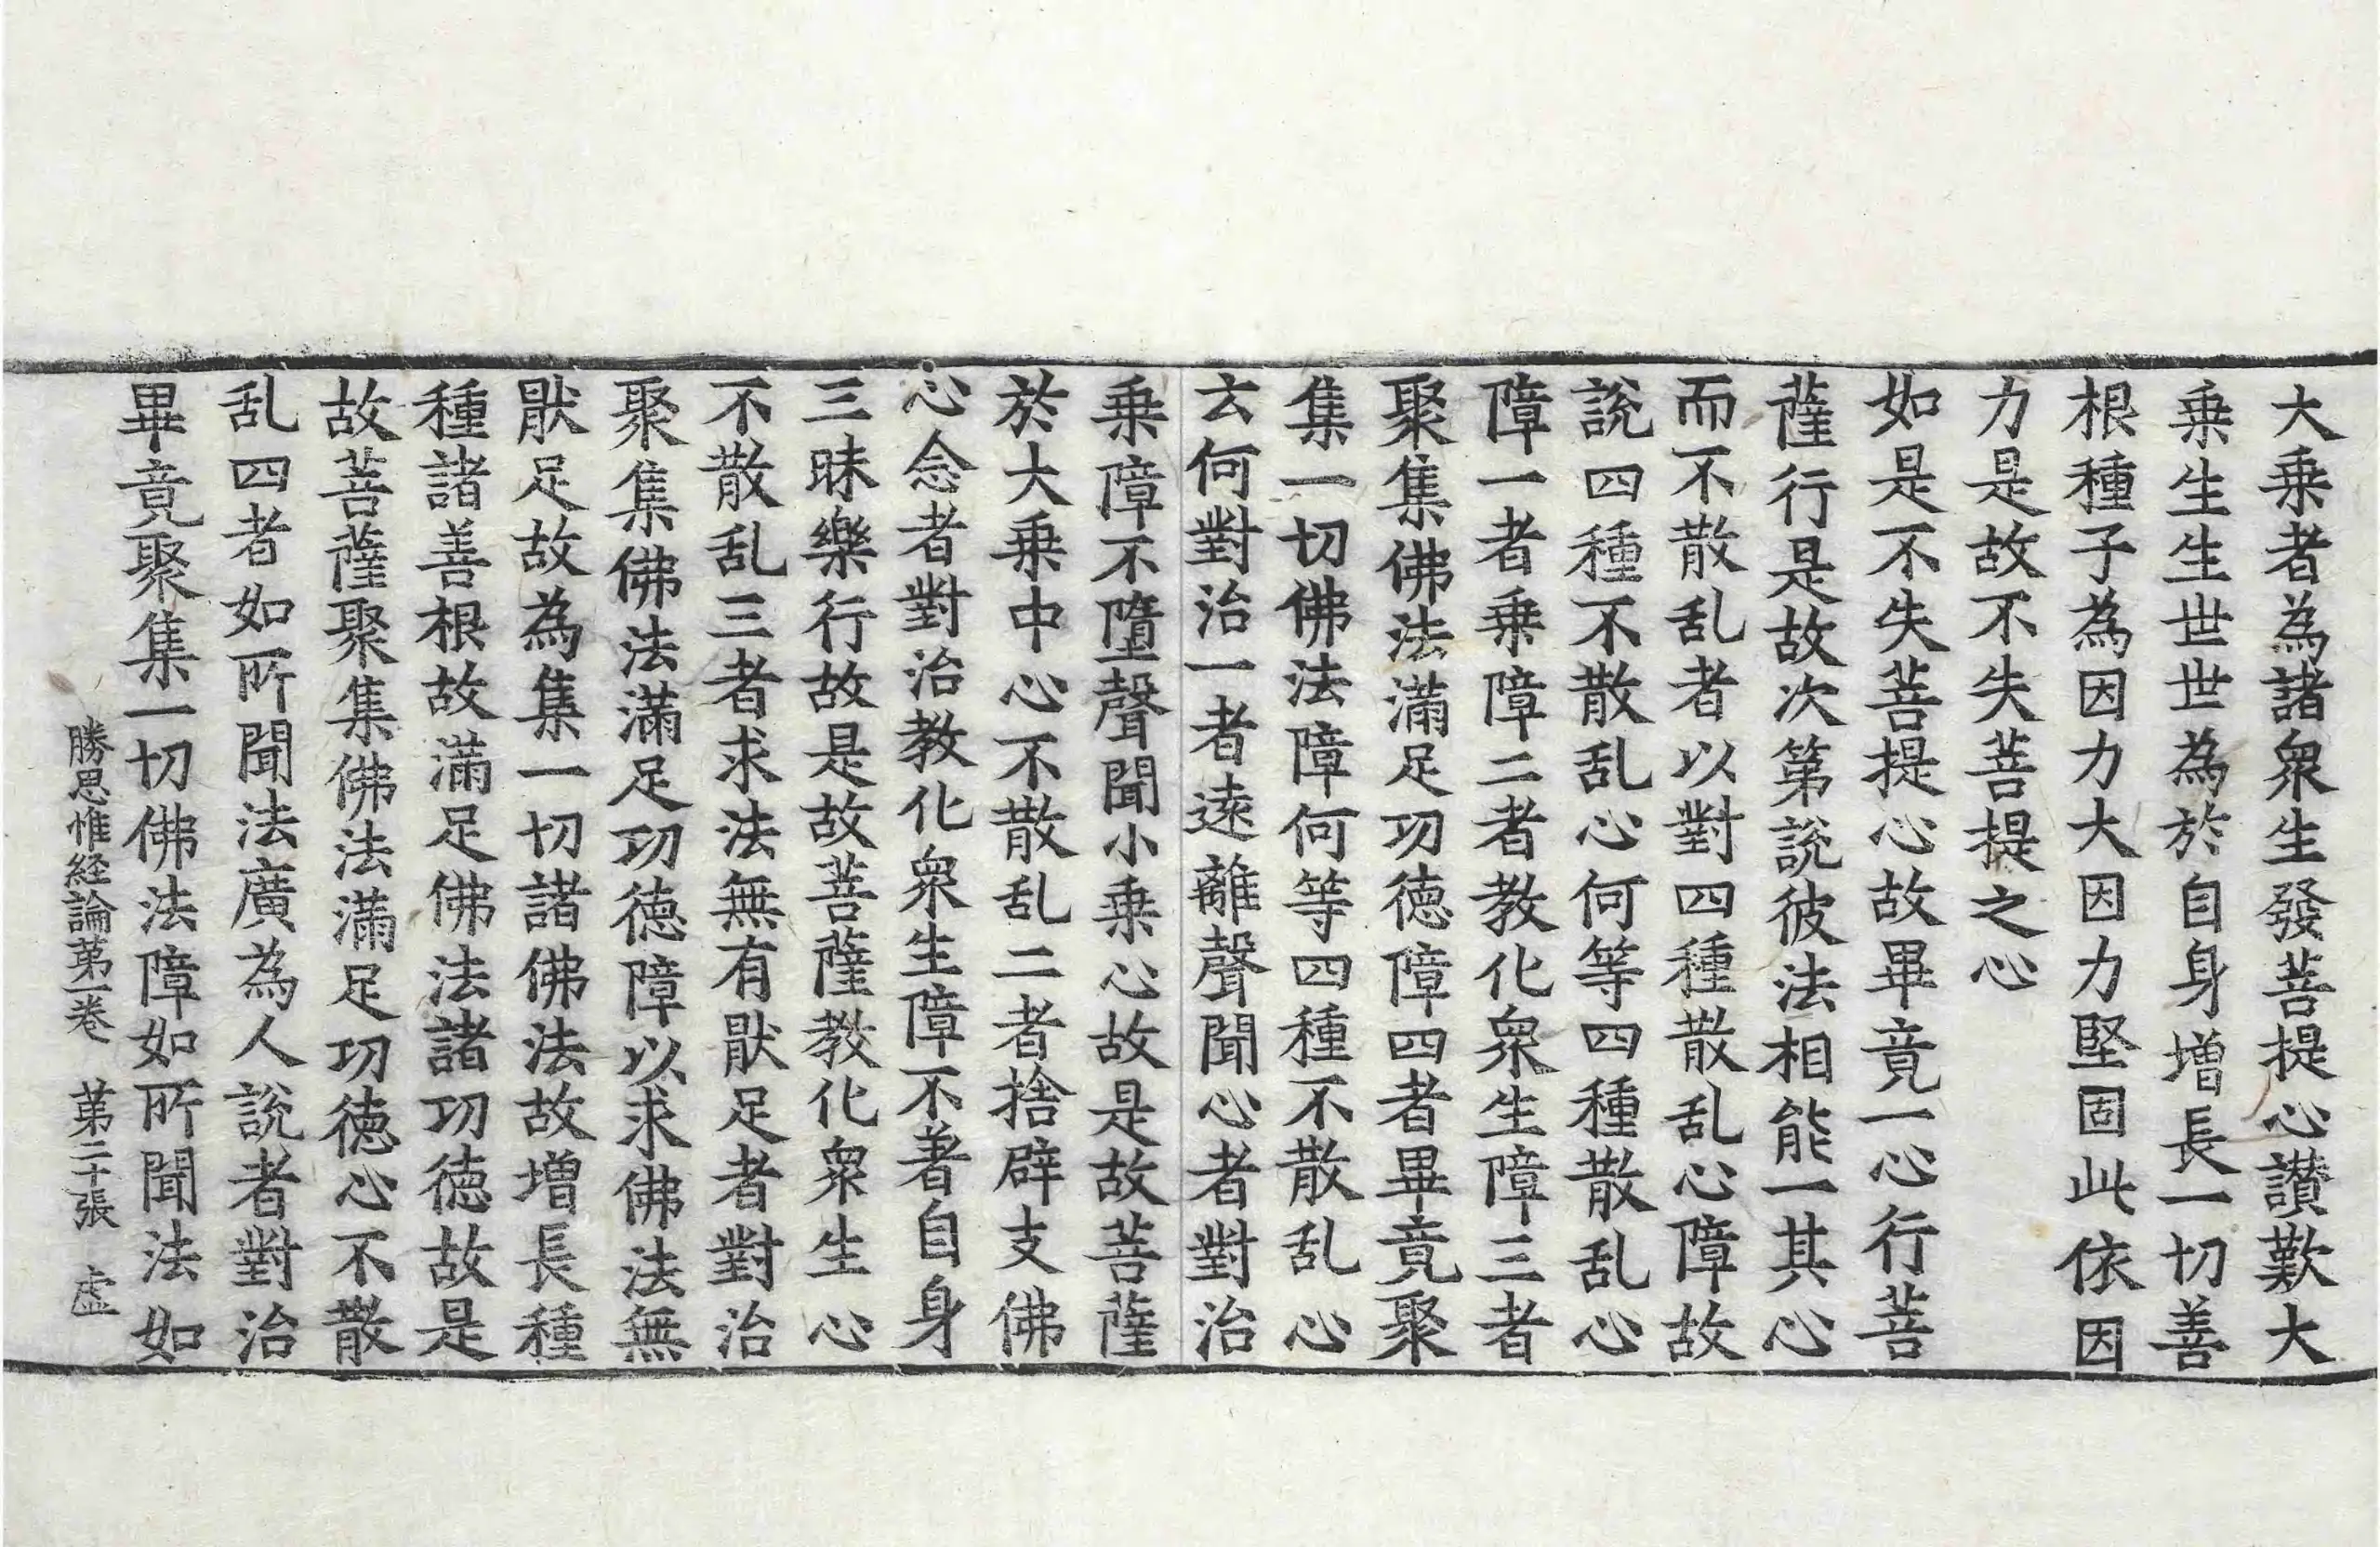 大乗者為諸衆生發菩提心讃歎大
乗生生世世為於自身増長一切善
根種子為因力大因力堅固此依因
力是故不失菩提之心
如是不失菩提心故畢竟一心行菩
薩行是故次第說彼法相能一其心
而不散乱者以對四種散乱心障故
說四種不散乱心何等四種散乱心
障一者乗障二者教化衆生障三者
聚集佛法滿足功德障四者畢竟聚
集一切佛法障何等四種不散乱心
云何對治一者遠離聲聞心者對治
乗障不墮聲聞小乗心故是故菩薩
於大乗中心不散乱二者捨辟支佛
心念者對治教化衆生障不著自身
三昧樂行故是故菩薩教化衆生心
不散乱三者求法無有猒足者對治
聚集佛法滿足功德障以求佛法無
猒足故為集一切諸佛法故増長種
種諸善根故滿足佛法諸功德故是
故菩薩聚集佛法滿足功徳心不散
乱四者如所聞法廣為人說者對治
畢竟聚集一切佛法障如所聞法如
勝思惟経論第一巻 第二十張 虛